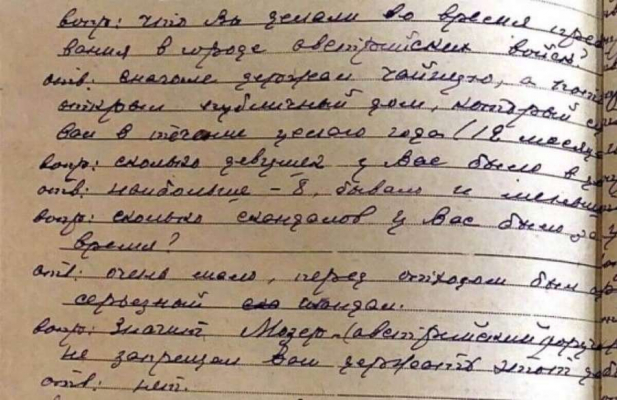 вопр: что Вы делали во время пребы
вания в городе австрийских войск?
отв: сначала держал чайную, а пот
открыл публичный дом, который су
вал в течение целого года (12 месяце
вопр: сколько девушек у Вас было в
отв: наибольше - 8, бывало и меньше
вопр: сколько скандалов у Вас было за
время?
отв: очень мало, перед отходом был
серьезный скандал.
вопр: Значит Мозер (австрийский
не запрещал Вам держать этот
отв: нет.